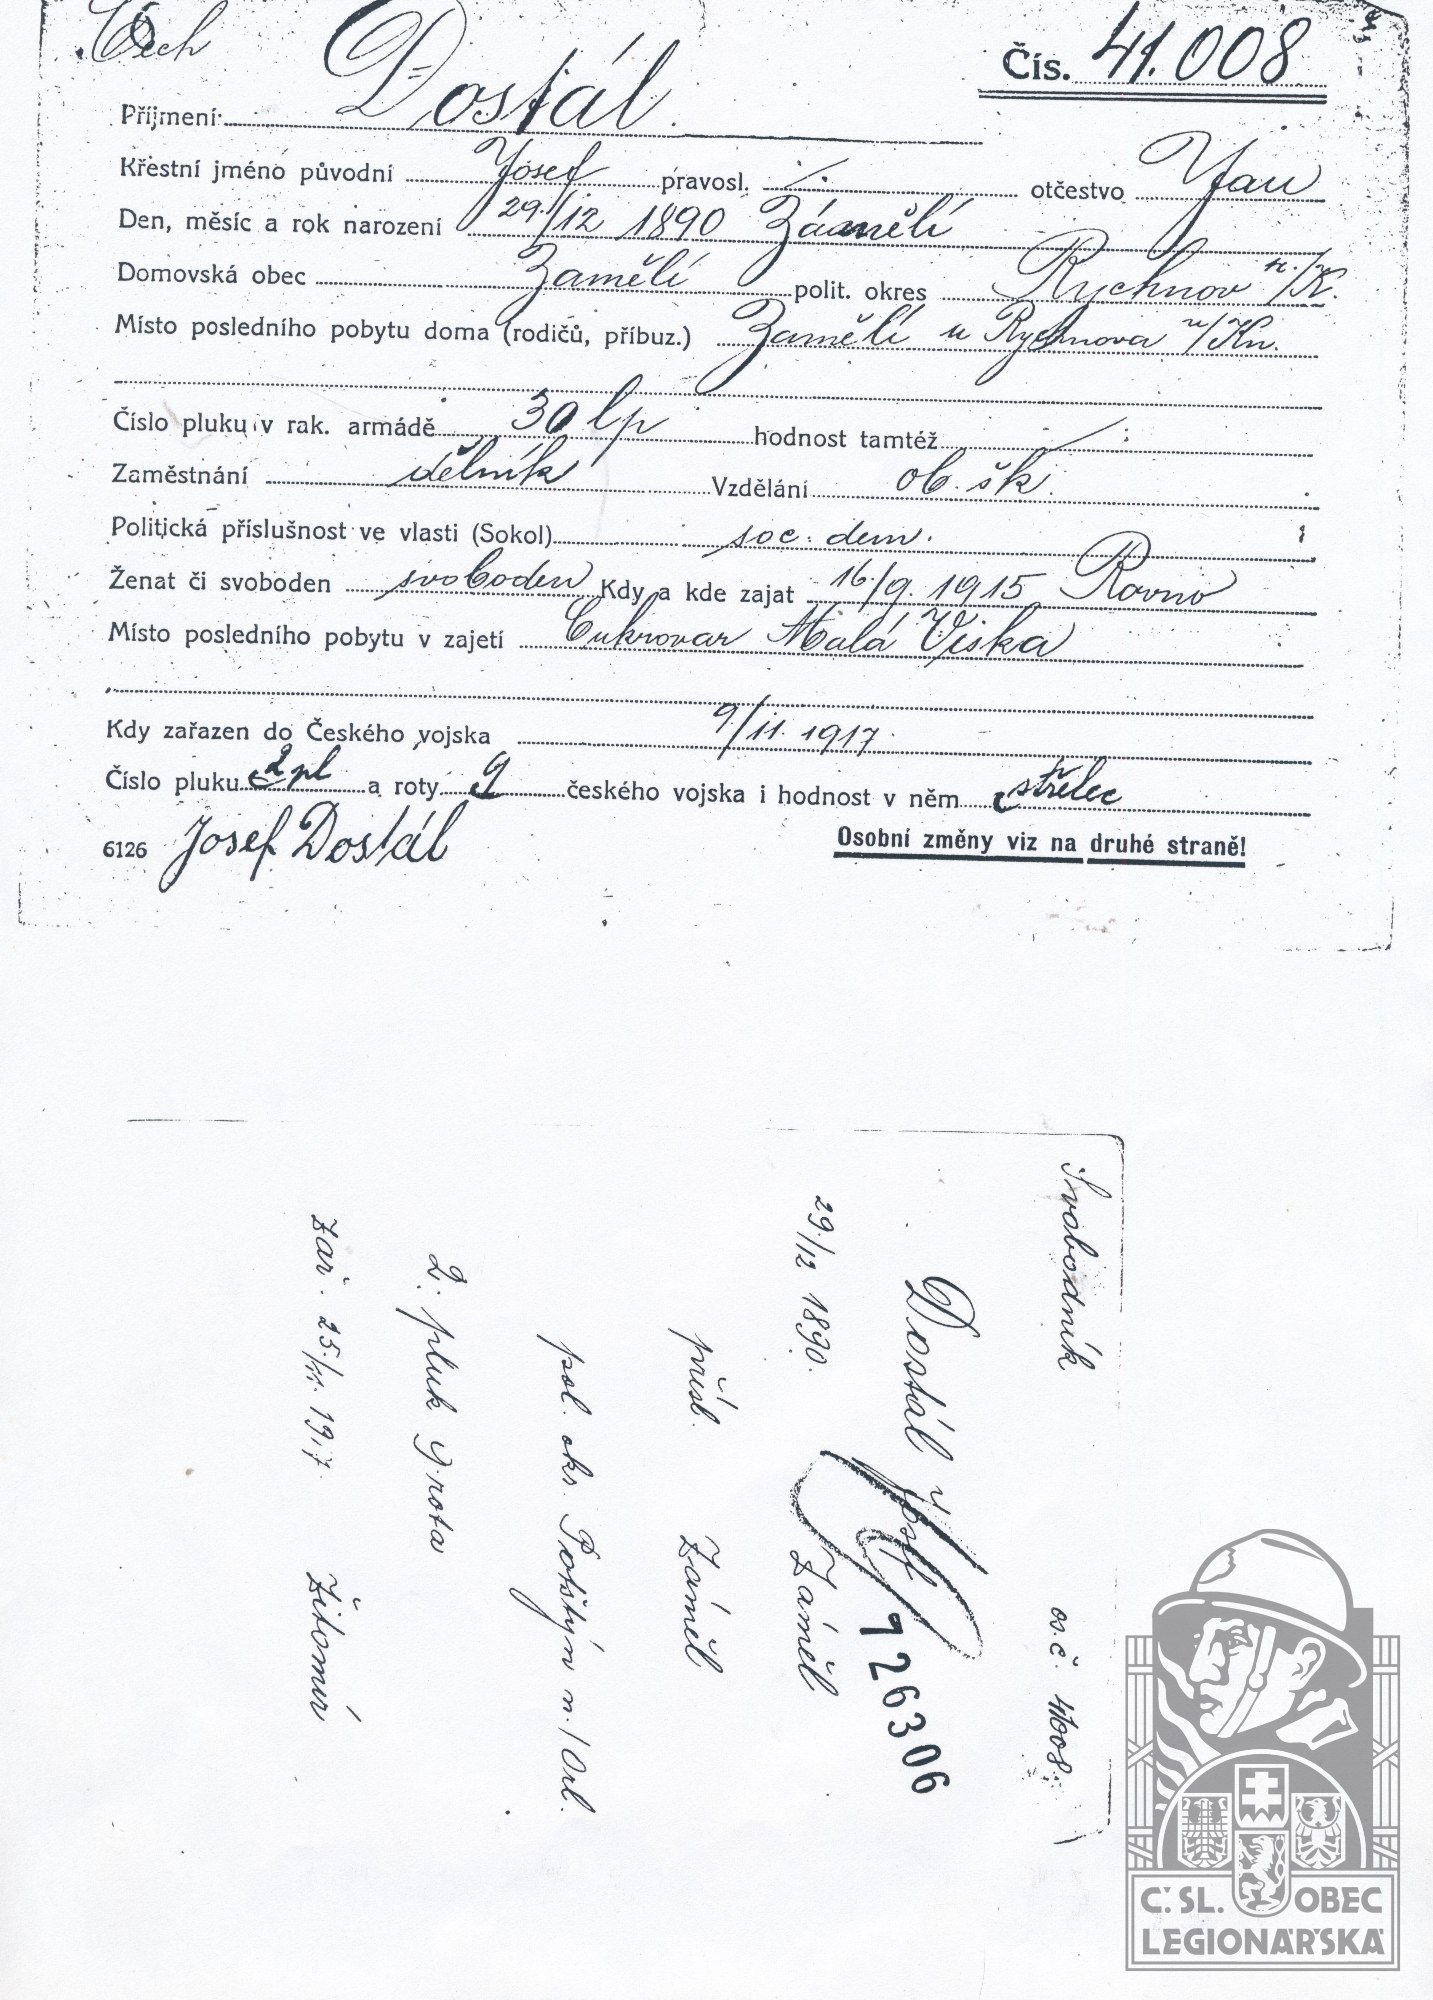 Čech
Čís. 41.008
Příjmení: Dostál
Křestní jméno původní Josef pravosl. /. otčestvo Jan
Den, měsíc a rok narození 29./12 1890 Zámělí
Domovská obec Zamělí polit. okres Rychnov n./K.
Místo posledního pobytu doma (rodičů, příbuz.) Zamělí u Rychnova n/Kn.
Číslo pluku v rak. armádě 30 lp hodnost tamtéž /
Zaměstnání dělník Vzdělání ob. šk.
Politická příslušnost ve vlasti (Sokol) soc. dem.
Ženat či svoboden svoboden Kdy a kde zajat 16./9. 1915 Rovno
Místo posledního pobytu v zajetí Cukrovar Malá Viska
Kdy zařazen do Českého vojska 9/11. 1917.
Číslo pluku 2 pl a roty 9 českého vojska i hodnost v něm střelec
6126 Josef Dostál Osobní změny viz na druhé straně!
Svobodník os. č. 41008
Dostál Josef
126306
29./12 1890. Záměl
přísl. Záměl
pol. okr. Potštýn n./Orl.
2. pluk 9 rota
Zař. 25./11. 1917. Žitomír
Č. SL. OBEC
LEGIONÁŘSKÁ